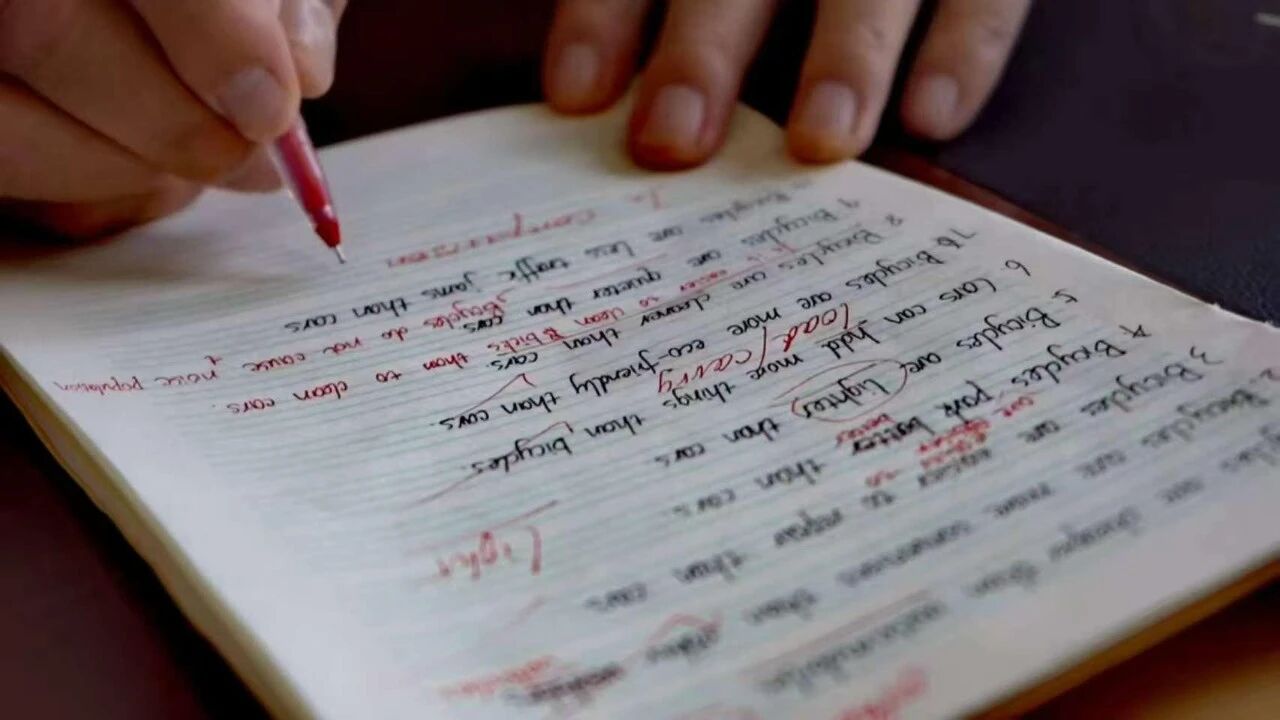 are cheaper than
2. Bicycles are more convenient than
3 Bicycles are easier to repair than cars
Light
4 Bicycles park better than cars.
better
5 Bicycles are lighter than cars
6 Cars can hold more things than bicycles.
load/carry
Bicycles are more eco-friendly than cars.
8 Bicycles are cleaner than cars.
it is easier to clean bicks than to clean cars.
9 Bicycles are quieter than cars
Bicycles do not cause noise population
Bicycles are less traffic jams than cars
comparison